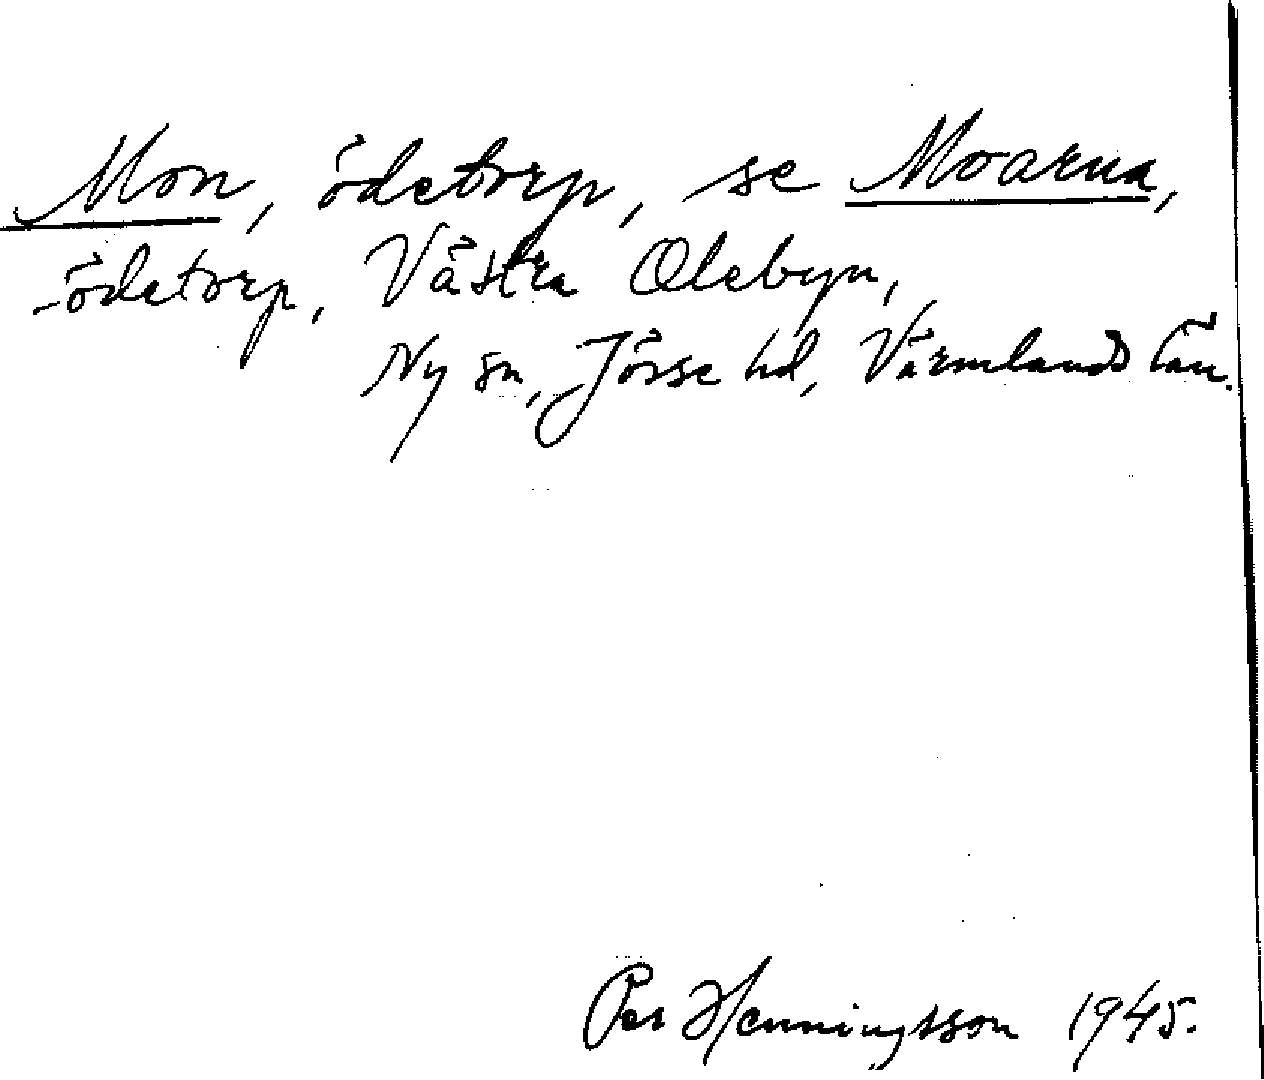 Mon, ödetorp, se Moarna,
ödetorp, Västra Olebyn,
Ny sn, Jösse hd, Värmlands län.
Per Henningsson 1945.